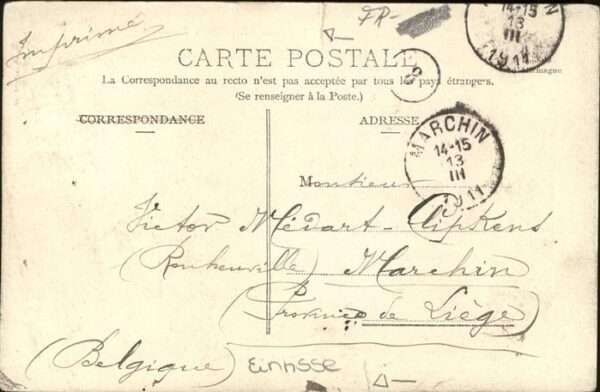 Imprimé
FR-
14-15
13
III
1911
CARTE POSTALE
La Correspondance au recto n'est pas acceptée par tous les pays étrangers.
(Se renseigner à la Poste.)
CORRESPONDANCE
ADRESSE
MARCHIN
14-15
13
III
1911
Monsieur
Victor Médart-Clipkens
Marchin
(Province de Liège)
(Belgique)